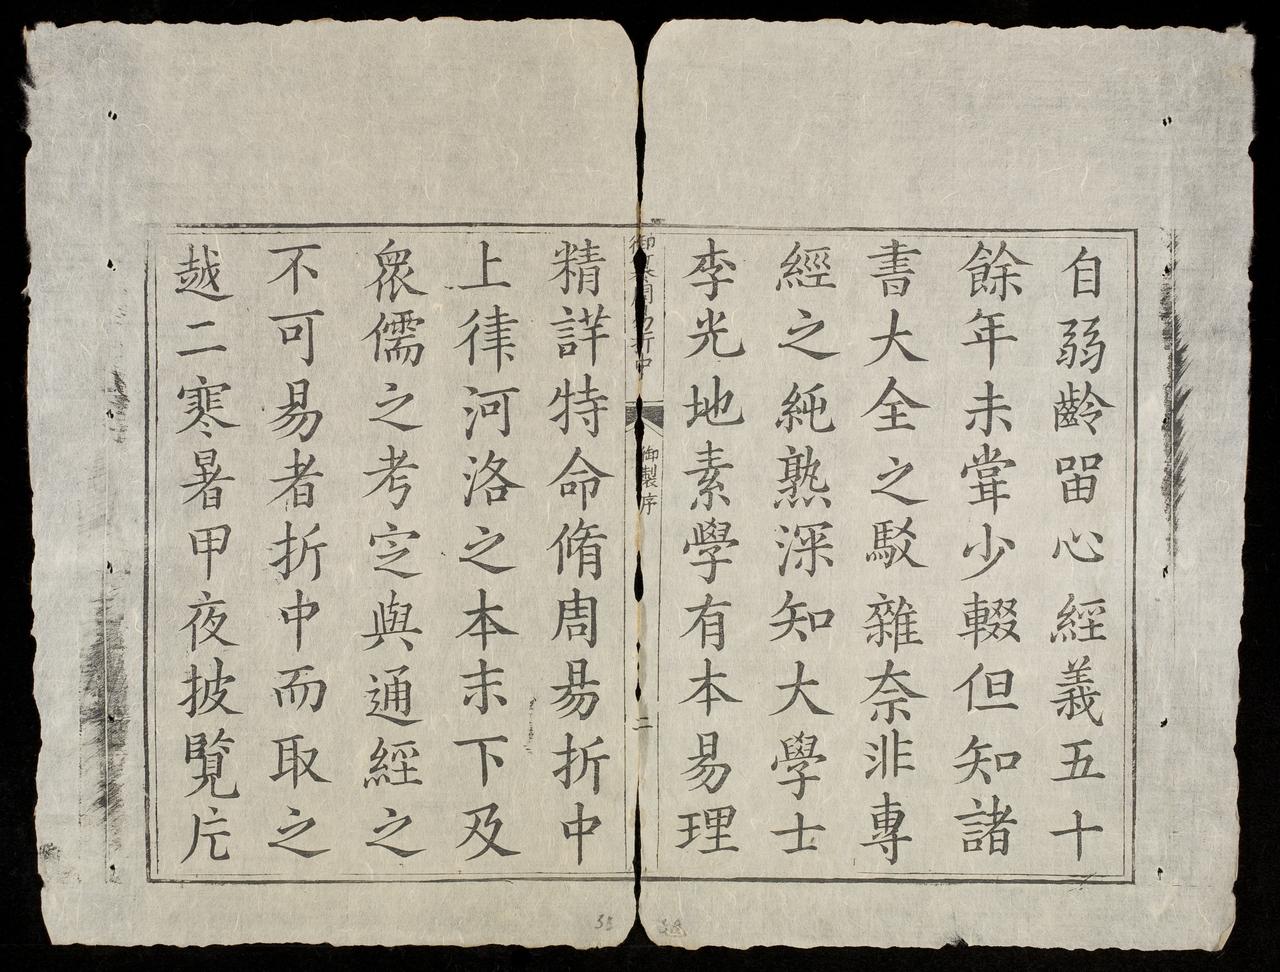 自弱齡留心經義五十
餘年未甞少輟但知諸
書大全之駁雜奈非專
經之純熟深知大學士
李光地素學有本易理
御纂周易折中
御製序
二
精詳特命脩周易折中
上律河洛之本末下及
衆儒之考定與通經之
不可易者折中而取之
越二寒暑甲夜披覽片